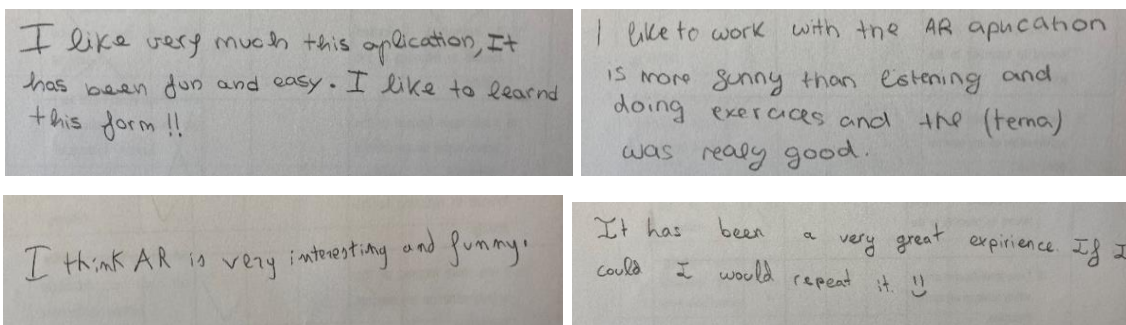 I like very much this aplication, It
has been fun and easy. I like to learnd
this form !!
I like to work with the AR aplication
is more funny than listening and
doing exercices and the (tema)
was realy good.
I think AR is very interesting and funny.
It has been a very great expirience. If I
could I would repeat it. !!